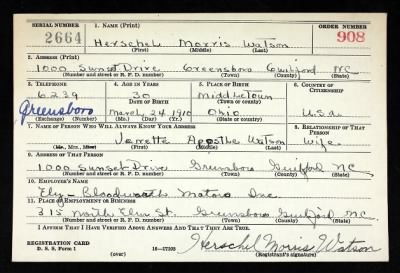 SERIAL NUMBER 1. NAME (Print) ORDER NUMBER
2664 Herschel Morris Watson 908
(First) (Middle) (Last)
2. ADDRESS (Print)
1000 Sunset Drive Greensboro Guilford NC
(Number and street or R. F. D. number) (Town) (County) (State)
3. TELEPHONE 4. AGE IN YEARS 5. PLACE OF BIRTH 6. COUNTRY OF CITIZENSHIP
6239 30 Middletown
DATE OF BIRTH (Town or county)
Greensboro March 24 1910 Ohio U.S.a.
(Exchange) (Number) (Mo.) (Day) (Yr.) (State or country)
7. NAME OF PERSON WHO WILL ALWAYS KNOW YOUR ADDRESS 8. RELATIONSHIP OF THAT PERSON
Watson Wife
(Mr., Mrs., Miss) (First) (Middle) (Last)
9. ADDRESS OF THAT PERSON
1000 Sunset Drive Greensboro Guilford NC
(Number and street or R. F. D. number) (Town) (County) (State)
10. EMPLOYER'S NAME
Bloodworth Motors Inc.
11. PLACE OF EMPLOYMENT OR BUSINESS
315 North Elm St. Greensboro Guilford N.C.
(Number and street or R. F. D. number) (Town) (County) (State)
I AFFIRM THAT I HAVE VERIFIED ABOVE ANSWERS AND THAT THEY ARE TRUE.
REGISTRATION CARD
D. S. S. Form 1 (over) 16—17105 Herschel Morris Watson
(Registrant's signature)